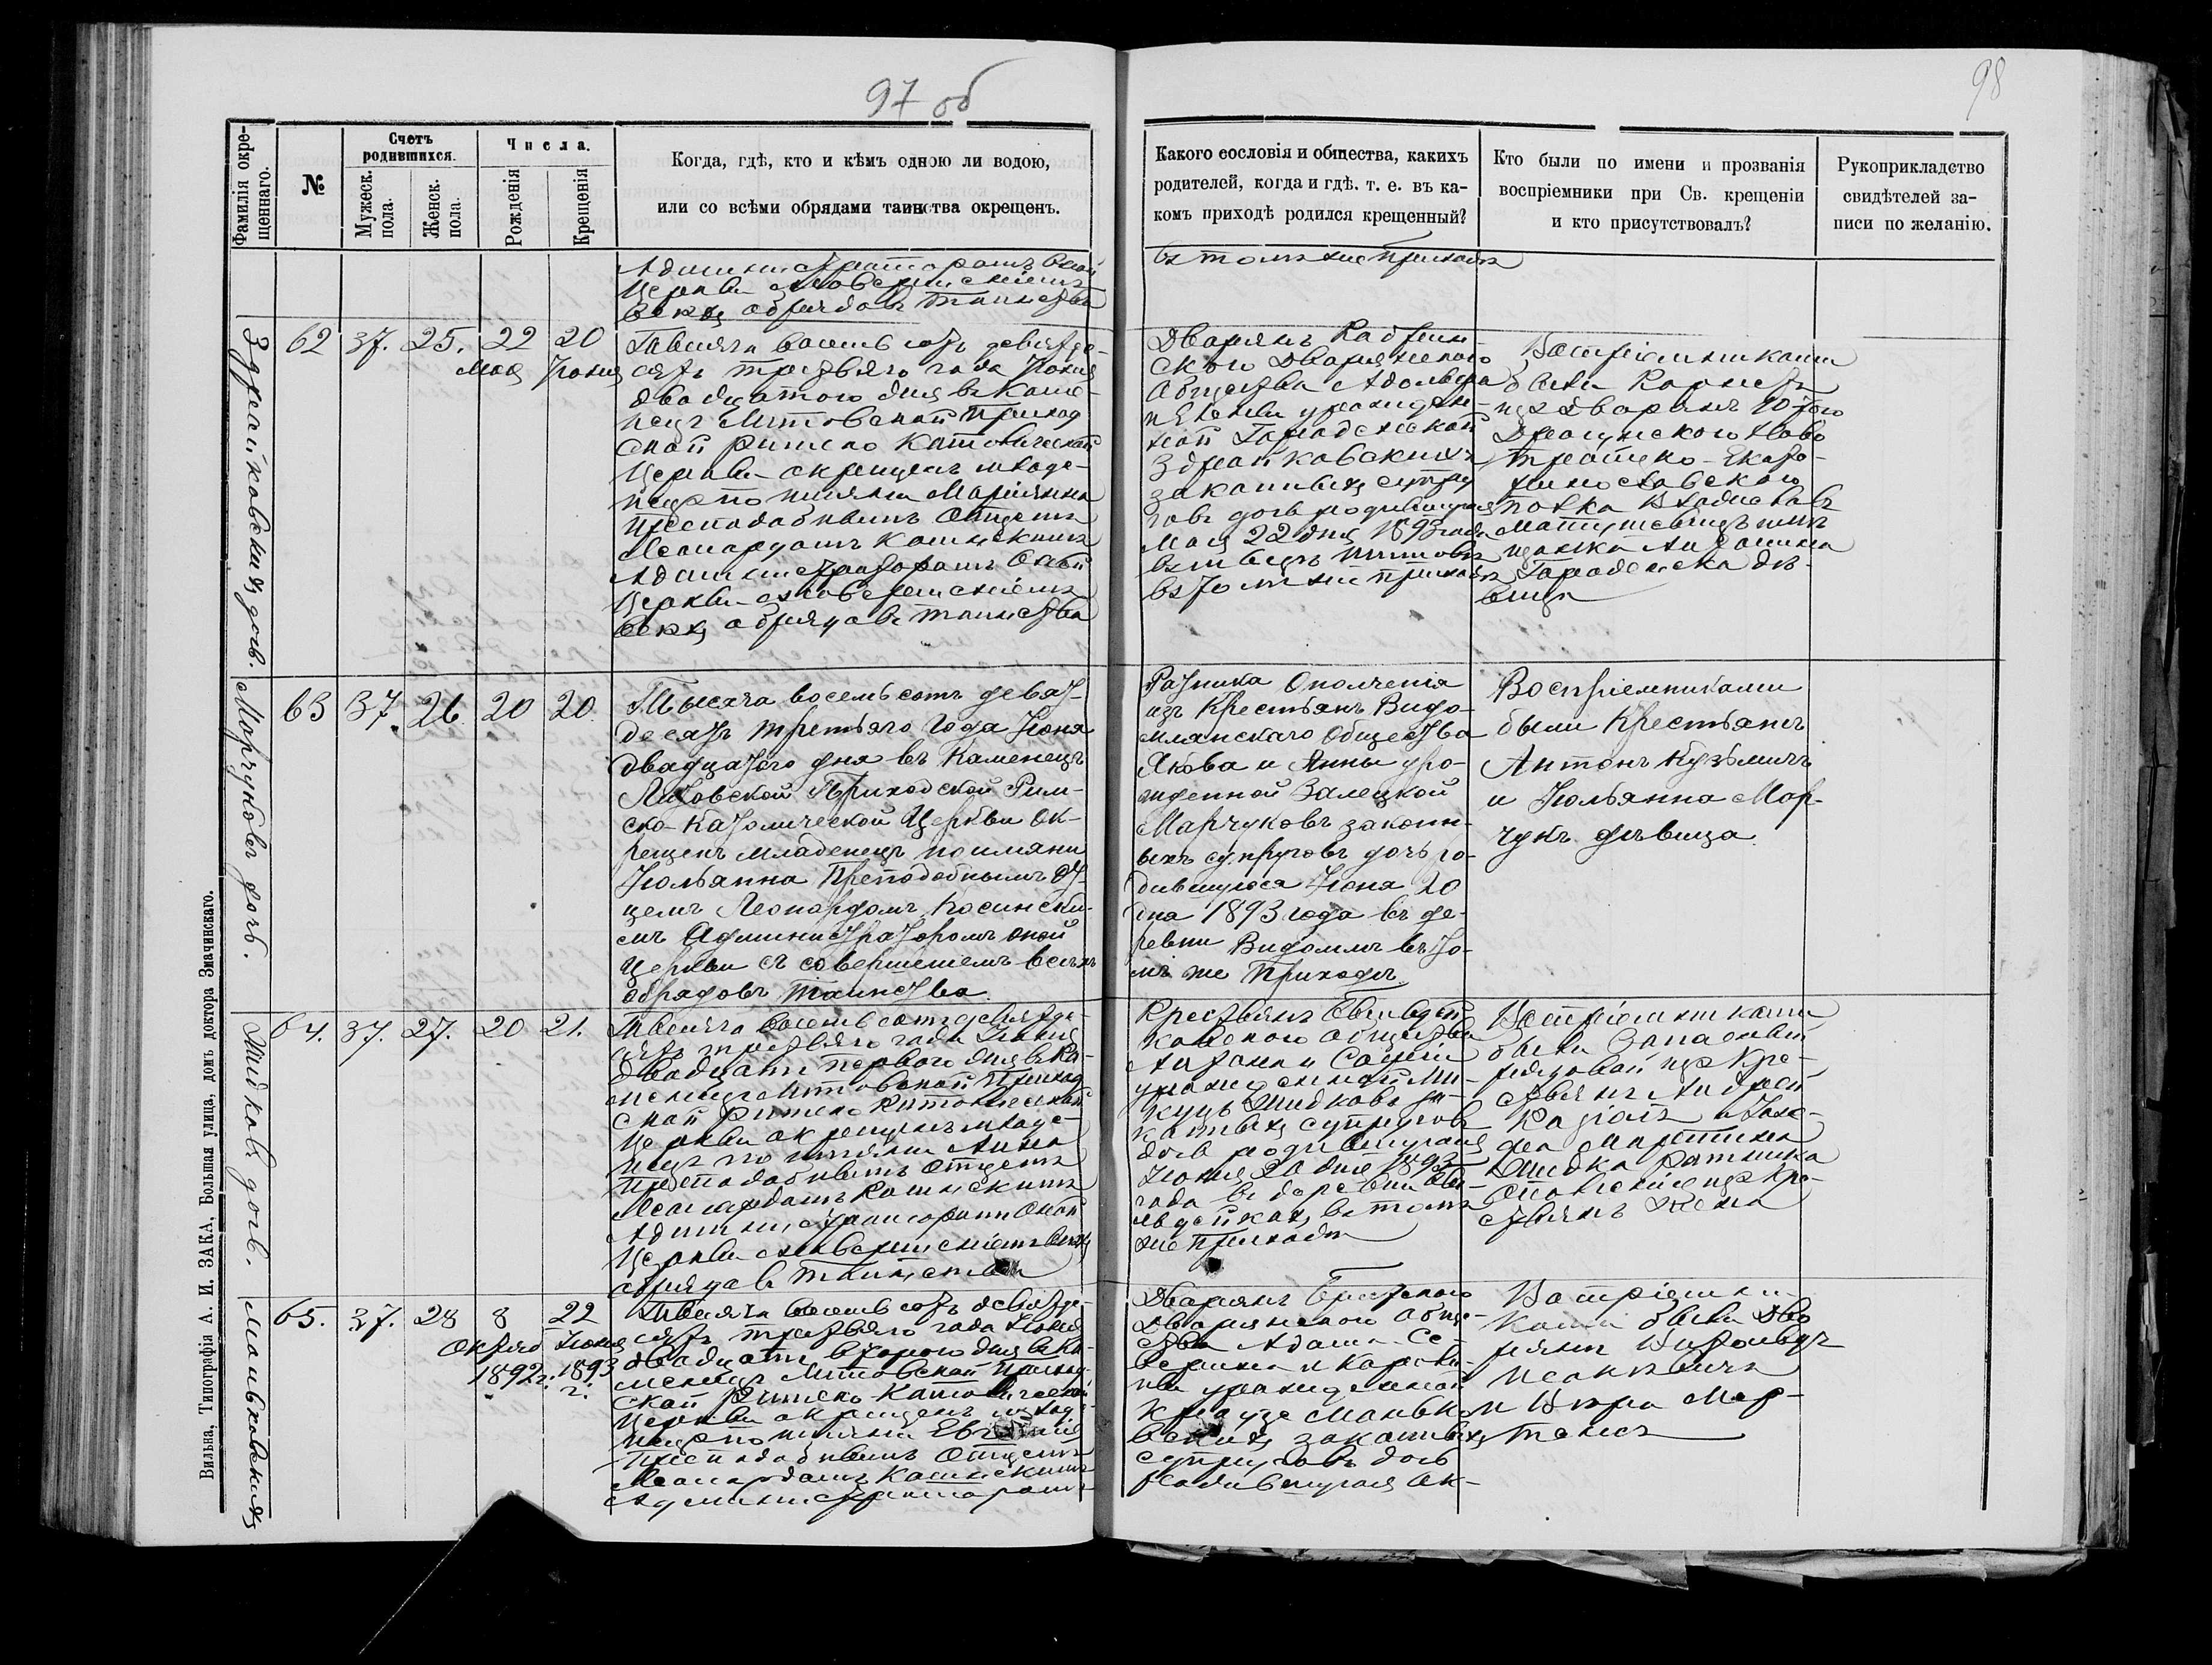 97 об
98
Фамилія окре-
щеннаго.
№
Счетъ
родившихся.
Мужеск.
пола.
Женск.
пола.
Числа.
Рожденія
Крещенія
Когда, гдѣ, кто и кѣмъ одною ли водою,
или со всѣми обрядами таинства окрещенъ.
Какого сословія и общества, какихъ
родителей, когда и гдѣ. т. е. въ ка-
комъ приходѣ родился крещенный?
Кто были по имени и прозванія
воспріемники при Св. крещеніи
и кто присутствовалъ?
Рукоприкладство
свидѣтелей за-
писи по желанію.
Администраторомъ оной
Церкви съ совершеніемъ
всѣхъ обрядовъ таинства
въ томъ же приходѣ
62 37. 25. 22 20
Мая Іюня
Тысяча восемь сотъ девятде-
сятъ третьяго года Іюня
двадцатого дня въ Каме-
нецъ Литовской Приход
ской Римско Католической
Церкви окрещенъ младе-
нецъ по имяни Маріянна
Преподобнымъ Отцемъ
Леонардомъ Косинскимъ
Администраторомъ оной
Церкви съ совершеніемъ
всѣхъ обрядовъ таинства
Дворянъ
Дворянского
Общества Адольфа
и урожден-
ной Городенской
Здрайковскихъ
законныхъ супру
говъ дочь родившуюся
Мая 22 дня 1893 года
въ томъ же приходѣ
Воспріемниками
были Корнетъ
изъ Дворянъ 10того
Драгунского Ново
троицко-Екате-
ринославского
полка Владиславъ
Матушевичъ
Антонина
Городенска дѣ-
вица
Марчуковъ дочь.
63 37. 26. 20 20.
Тысяча восемьсотъ девят-
десятъ третьяго года Іюня
двадцатого дня въ Каменецъ
Литовской Приходской Рим-
ско-Католической Церкви ок-
рещенъ младенецъ по имяни
Юльянна Преподобнымъ От-
цемъ Леонардомъ Косински-
мъ Администраторомъ оной
Церкви съ совершеніемъ всѣхъ
обрядовъ Таинства.
Ратника Ополченія
изъ Крестьянъ Видо-
млянскаго Общества
Якова и Анны уро-
жденной Залецкой
Марчуковъ закон-
ныхъ супруговъ дочь ро-
дившуюся Іюня 20
дня 1893 года въ де-
ревни Видомлѣ въ то-
мъ же Приходѣ.
Воспріемниками
были Крестьянъ
Антонъ Кузьмичъ
и Юльянна Мар-
чукъ дѣвица.
64. 37. 27. 20 21.
Тысяча восемь сотъ девятде-
сятъ третьяго года Іюня
двадцать первого дня въ Ка-
менецъ Литовской Приход
ской Римско Католической
Церкви окрещенъ младе-
нецъ по имяни Анна
Преподобнымъ Отцемъ
Леонардомъ Косинскимъ
Администраторомъ оной
Церкви съ совершеніемъ всѣхъ
обрядовъ таинства
Крестьянъ
кавского общества
Антона и Софіи
урожденной Ми-
куцъ Шидковъ за-
конныхъ супруговъ
дочь родившуюся
Іюня 20 дня 1893
года въ деревни
въ томъ
же приходѣ
Воспріемниками
были Запасный
рядовой изъ Кре-
стьянъ Андрей
и Юзе-
фа Мартина
Шидка ратника
Ополченія изъ Кре-
стьянъ жена
Маньковскихъ
65. 37. 28 8 22
Октяб Іюня
1892 г. 1893 г.
Тысяча восемь сотъ девятде-
сятъ третьяго года Іюня
двадцать второго дня въ Ка-
менецъ Литовской Приход-
ской Римско-Католической
Церкви окрещенъ младе-
нецъ по имяни
Преподобнымъ Отцемъ
Леонардомъ Косинскимъ
Администраторомъ
Дворянъ Брестского
Дворянского обще-
ства Адама Се-
верина и Кароли-
ны урожденной
Краузе Манько
вскихъ законныхъ
супруговъ дочь
родившуюся Ок-
Воспріемни-
ками были Дво
рянъ
и Вѣра Мар-
Вильна, Типографія А. И. ЗАКА, Большая улица, домъ доктора Змачинскаго.